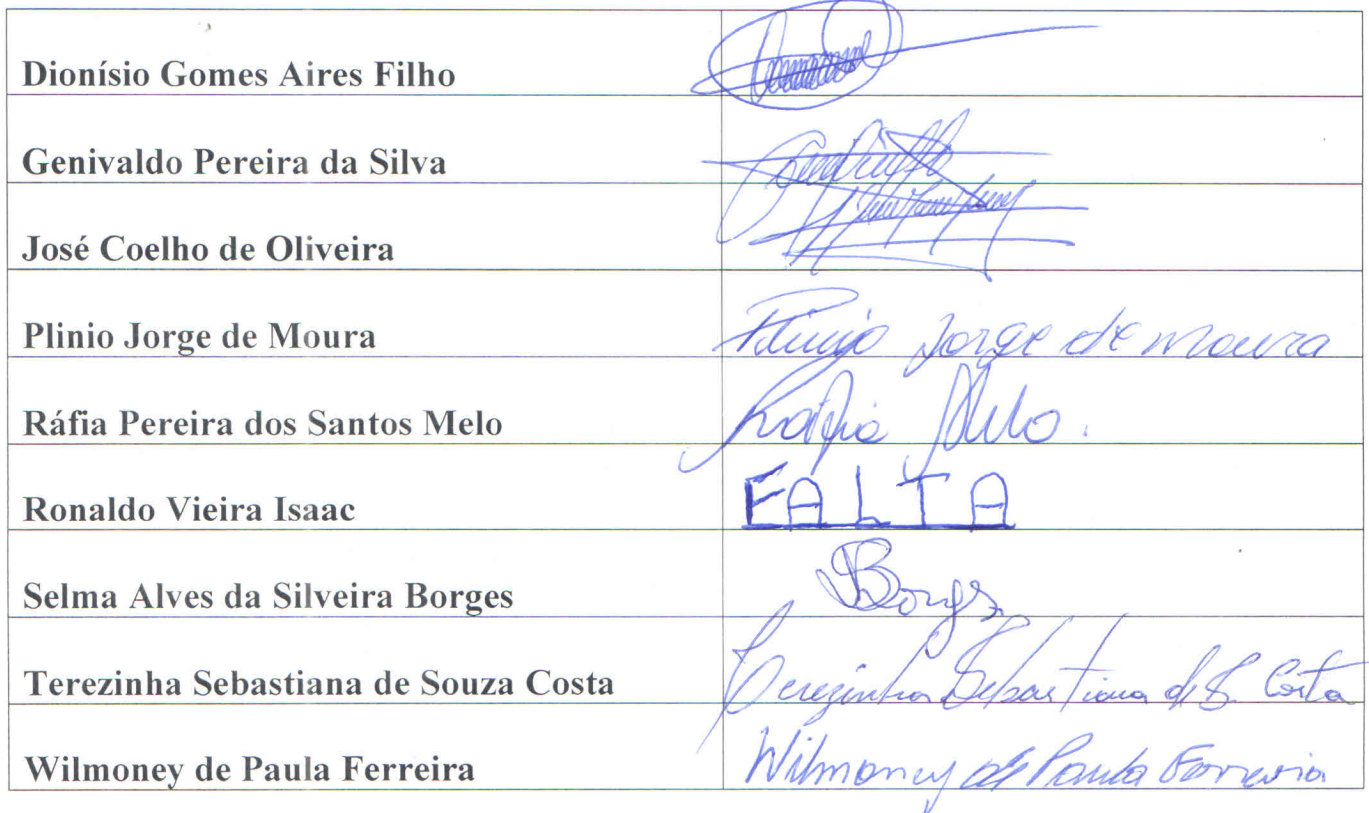 Dionísio Gomes Aires Filho
Genivaldo Pereira da Silva
José Coelho de Oliveira
Plinio Jorge de Moura Plinio Jorge de moura
Ráfia Pereira dos Santos Melo Ráfia Melo.
Ronaldo Vieira Isaac FALTA
Selma Alves da Silveira Borges SBorges
Terezinha Sebastiana de Souza Costa Terezinha Sebastiana de S. Costa
Wilmoney de Paula Ferreira Wilmoney de Paula Ferreira